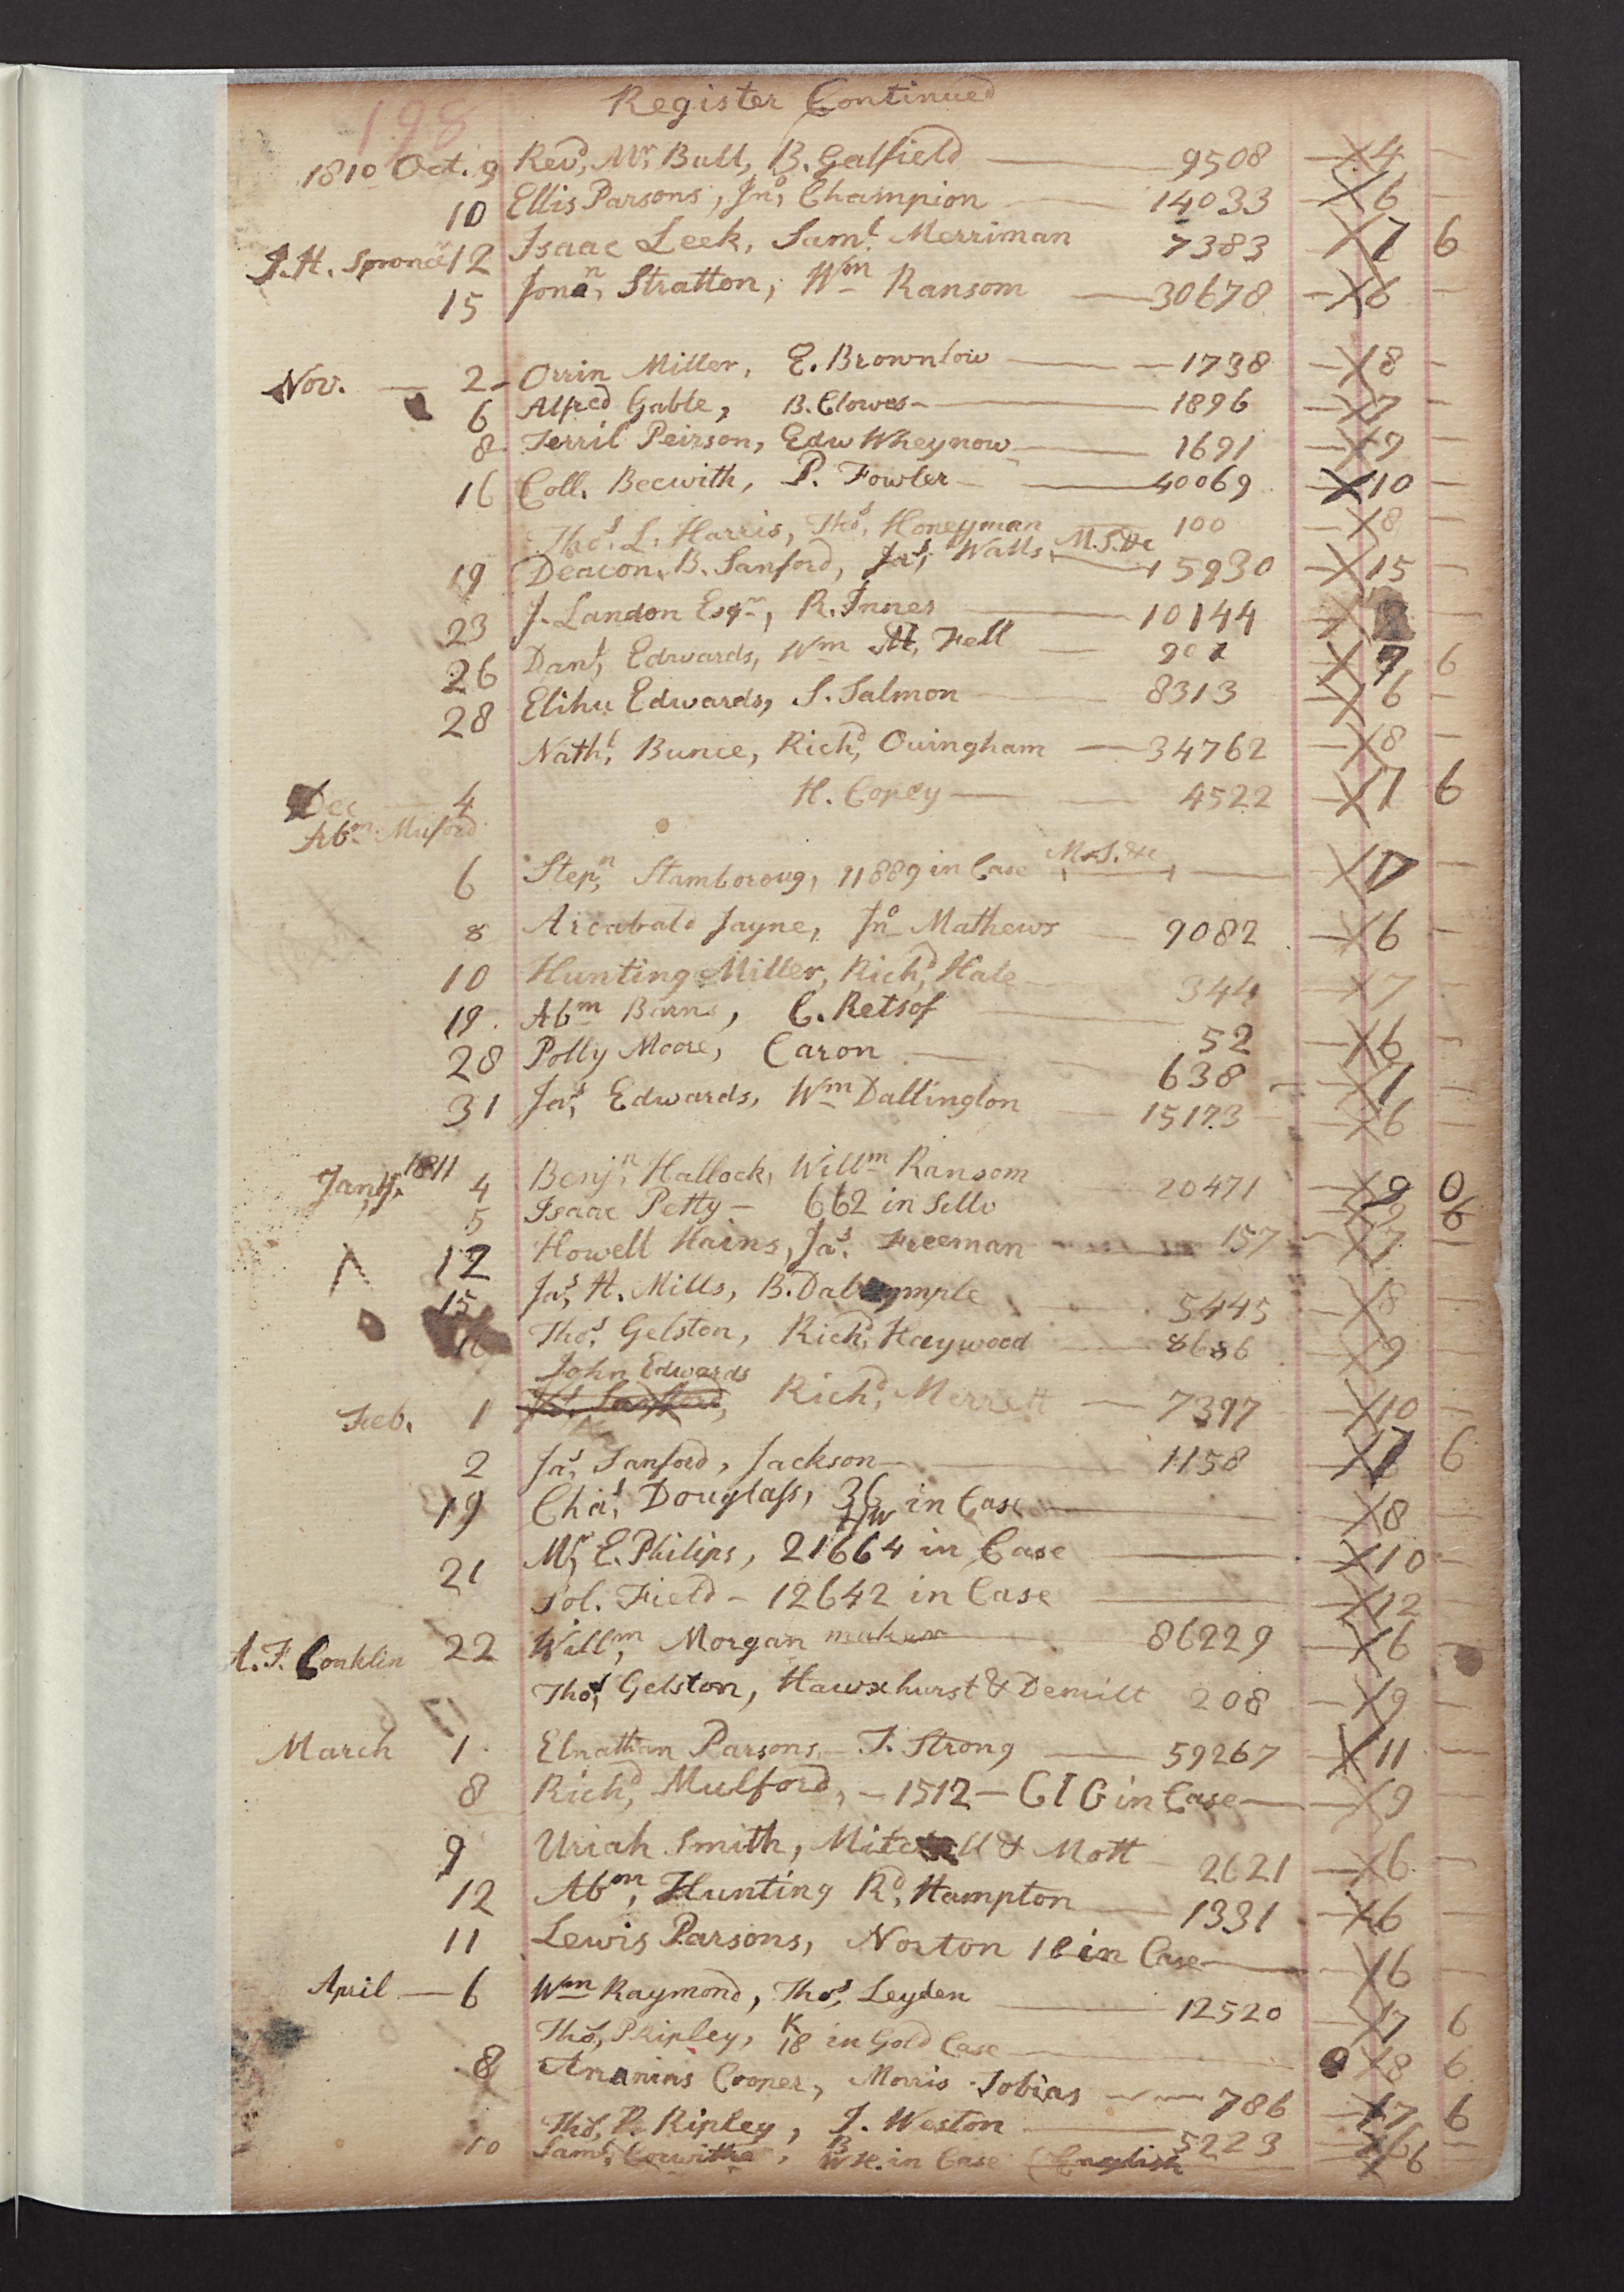 198
Register Continued
1810 Oct. 9 Revd, Mr. Bull, B. Gatfield — 9508 — X 4 —
10 Ellis Parsons, Jno, Champion — 14033 — X 6 —
12 Isaac Leek, Saml. Merriman 7383 — X 7 6
J.H.
15 Jonn, Stratton, Wm Ransom — 30678 — X 6 —
Nov. — 2 - Orrin Miller, E. Brownlow — 1738 — X 8 —
6 Alfred Gable, B. Clowes — 1896 — X 7 —
8 Terril Peirson, Edw Wheynow — 1691 — X 9 —
16 Coll. Becwith, P. Fowler — 40069 — X 10 —
Thos. L. Harris, Thos, Honeyman 100 — X 8 —
19 Deacon. B. Sanford, Jas, Walls M.S. &c 5930 — X 15 —
23 J. Landon Esqr, R. Innes — 10144 — X 8 —
26 Danl, Edwards, Wm M. Fell — 902 X 7 6
28 Elihu Edwards, S. Salmon — 8313 — X 6 —
Nathl, Bunce, Richd, Owingham — 34762 — X 8 —
Dec — 4 H. Copey — 4522 — X 7 6
Abm. Mulford
6 Stepn, Stamboroug, 11889 in Case M.S. &c — X 17 —
8 Arcabald Jayne, Jno Mathews — 9082 — X 6 —
10 Hunting Miller, Richd, Hale 344 — X 7 —
19. Abm Barns, C. Retsof — 52 — X 6 —
28 Polly Moore, Caron — 638 — X 1 —
31 Jas, Edwards, Wm Dallington — 15173 — X 6 —
Jany. 1811 4 Benjn, Hallock, Willm Ransom 20471 — X 9 0
5 Isaac Petty — 662 in Sello — X 9 6
12 Howell Hains, Jas. Freeman 157 — X 7 —
15 Jas, H. Mills, B. Dalrymple 5445 — X 8 —
16 Thos, Gelston, Richd, Haywood — 8686 — X 9 —
John Edwards
Feb. 1 Richd, Merrett — 7397 — X 10 —
2 Jas, Sanford, Jackson — 1158 — X 7 6
19 Chas, Douglass, 36 in Case — X 8 —
21 Mr, E. Philips, 21664 in Case — X 10 —
Sol. Field — 12642 in Case — X 12 —
A. F. Conklin 22 Willm, Morgan maker — 86229 — X 6 —
Thos, Gelston, Hawxhurst & Demilt 208 — X 9 —
March 1. Elnathan Parsons, — T. Strong — 59267 — X 11 —
8 Richd, Mulford, — 1512 — GIG in Case — X 9 —
9 Uriah Smith, Mitchell & Mott — 2621 — X 6 —
12 Abm, Hunting Rd, Hampton — 1331 — X 6 —
11 Lewis Parsons, Norton in Case — X 6 —
April — 6 Wm Raymond, Thos, Leyden — 12520 X 7 6
Thos, P Ripley, K 18 in Gold Case — X 8 6
8 Ananias Cooper, Morris Tobias — 786 — X 7 6
Thos, P. Ripley, J. Weston — 5223 — X 6 —
10 Saml, in Case (English — X 6